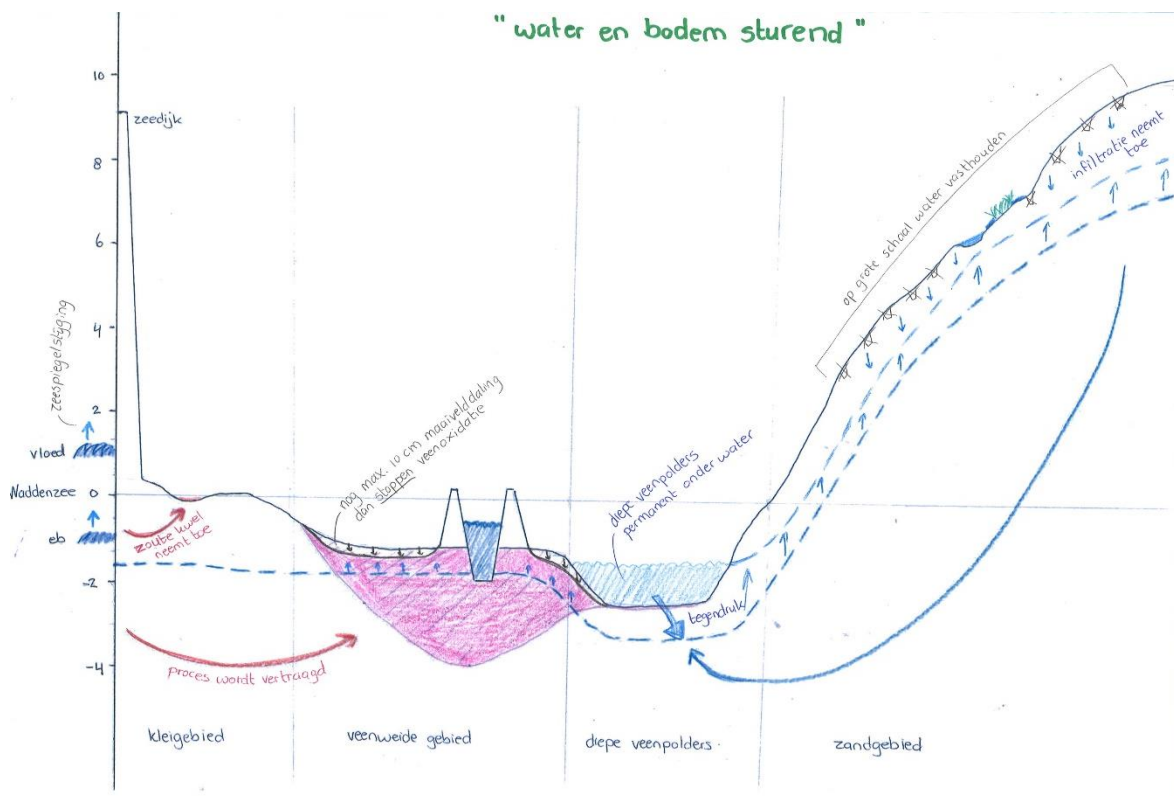 "water en bodem sturend"
10
zeedijk
8
6
4
2
0
-2
-4
zeespiegelstijging
vloed
Waddenzee
eb
zoute kwel
neemt toe
proces wordt vertraagd
nog max. 10 cm maaivelddaling
dan stoppen veenoxidatie
diepe veenpolders
permanent onder water
tegendruk
op grote schaal water vasthouden
infiltratie neemt
toe
kleigebied
veenweide gebied
diepe veenpolders
zandgebied